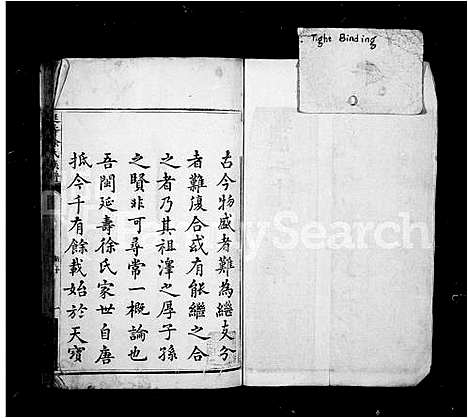 Tight Binding
古今物盛者難為繼支分
者難復合或有能繼之合
之者乃其祖澤之厚子孫
之賢非可尋常一概論也
吾閩延壽徐氏家世自唐
抵今千有餘載始於天寶
FamilySearch